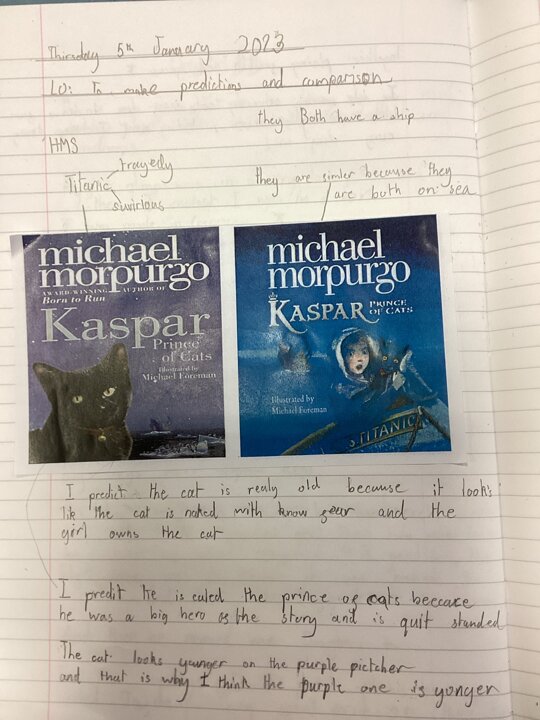 Thirsday 5th January 2023
LO: To make predictions and comparison
they Both have a ship
HMS
Titanic
tragedy
they are simler because they
are both on sea
michael
morpurgo
AWARD-WINNING AUTHOR OF
Born to Run
Kaspar
Prince
of Cats
Illustrated by
Michael Foreman
michael
morpurgo
KASPAR PRINCE
OF CATS
Illustrated by
Michael Foreman
S. TITANIC
I predict the cat is realy old because it look's
lik the cat is naked with know gear and the
girl owns the cat
I predit he is caled the prince of cats beccace
he was a big hero of the story and is quit
The cat looks younger on the purple pictcher
and that is why I think the purple one is yonger